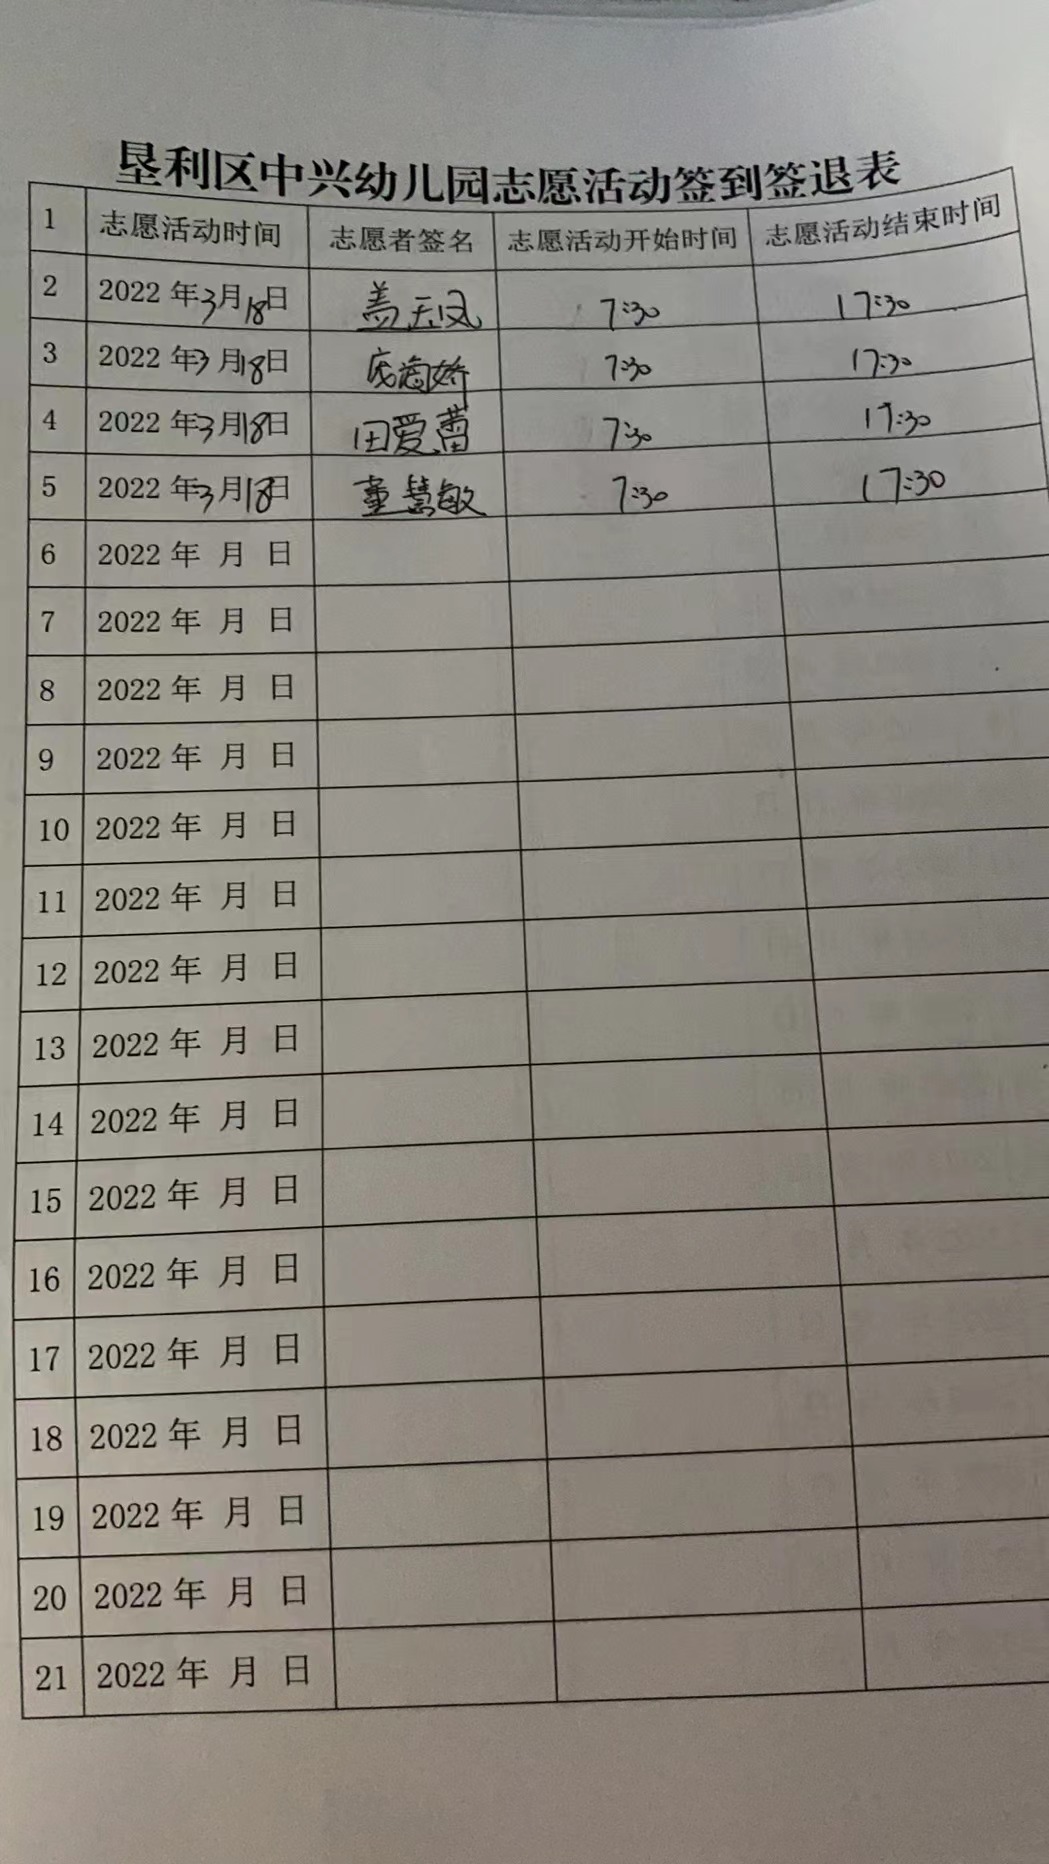 垦利区中兴幼儿园志愿活动签到签退表
1 志愿活动时间 志愿者签名 志愿活动开始时间 志愿活动结束时间
2 2022年3月18日 盖天凤 7:30 17:30
3 2022年3月18日 7:30 17:30
4 2022年3月18日 田爱蕾 7:30 17:30
5 2022年3月18日 董慧敏 7:30 17:30
6 2022年 月 日
7 2022年 月 日
8 2022年 月 日
9 2022年 月 日
10 2022年 月 日
11 2022年 月 日
12 2022年 月 日
13 2022年 月 日
14 2022年 月 日
15 2022年 月 日
16 2022年 月 日
17 2022年 月 日
18 2022年 月 日
19 2022年 月 日
20 2022年 月 日
21 2022年 月 日